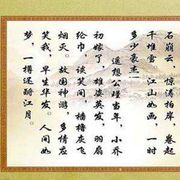 石崩云，惊涛拍岸，卷起
千堆雪。江山如画，一时
多少豪杰。
遥想公瑾当年，小乔
初嫁了，雄姿英发，羽扇
纶巾，谈笑间，樯橹灰飞
烟灭。故国神游，多情应
笑我，早生华发。人间如
梦，一樽还酹江月。